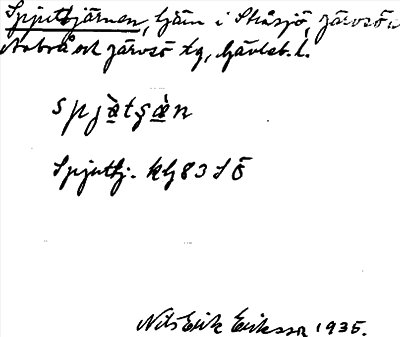 Spjuttjärnen, tjärn i Skåsjö, Järvsö o.
Nabrå ock Järvsö tg, Gävleb. l.
spjàtşæ̀n
Spjuttj. kbl 83 SÖ
Nils Erik Eriksson 1935.